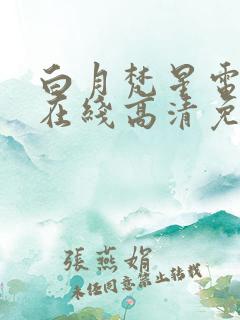 白月梵星雷
在线高清免
張燕娟
未经同意禁止转载